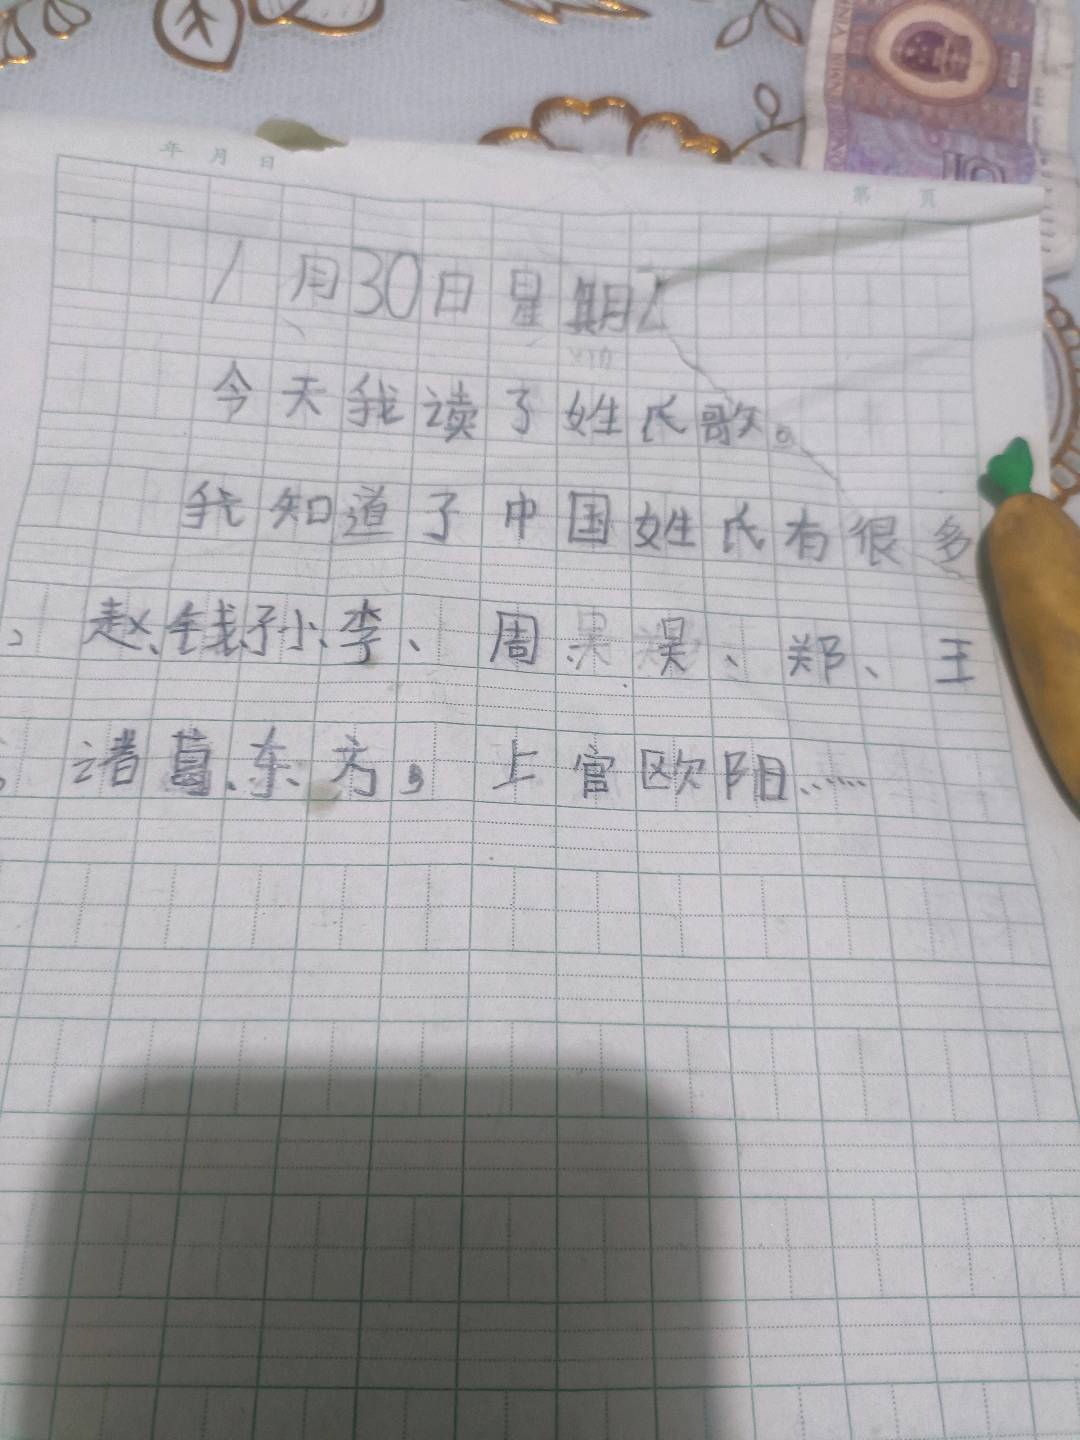 年 月 日
第 页
1月30日星期
今天我读了姓氏歌。
我知道了中国姓氏有很多
、赵、钱、孙、李、周、吴、郑、王
诸葛、东方，上官欧阳……